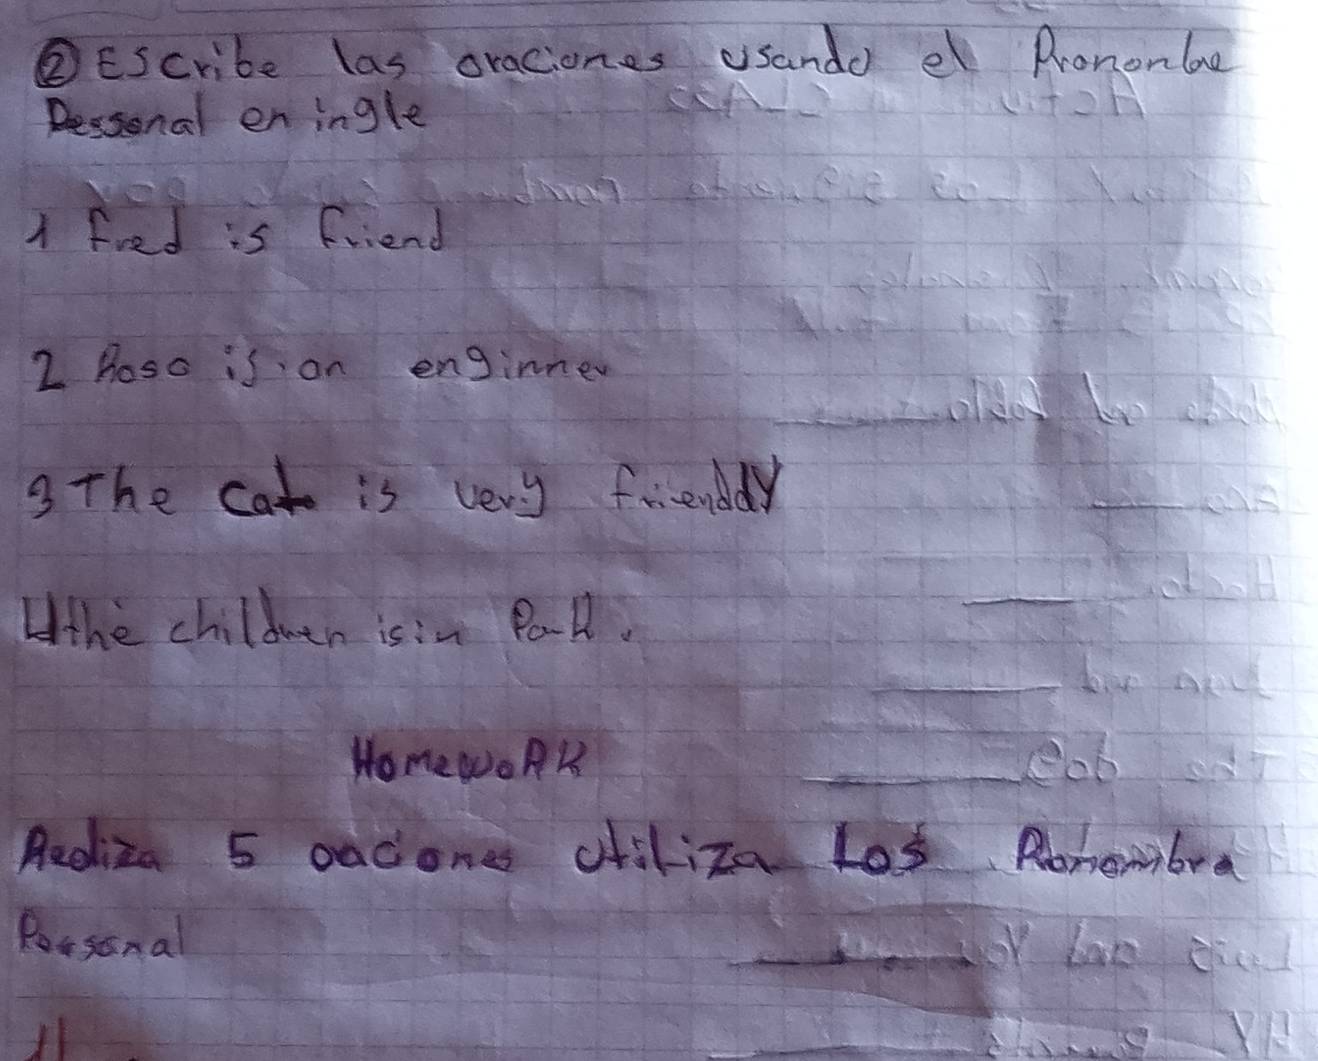 ② Escribe las oraciones usando el Prononbre
Pessonal en ingle
1 fred is friend
2 Rosa is an enginner
3 The cat is very frienddy
4 the children is in Park.
HomewoRK
Realiza 5 oaciones utiliza Los Pronombra
Personal